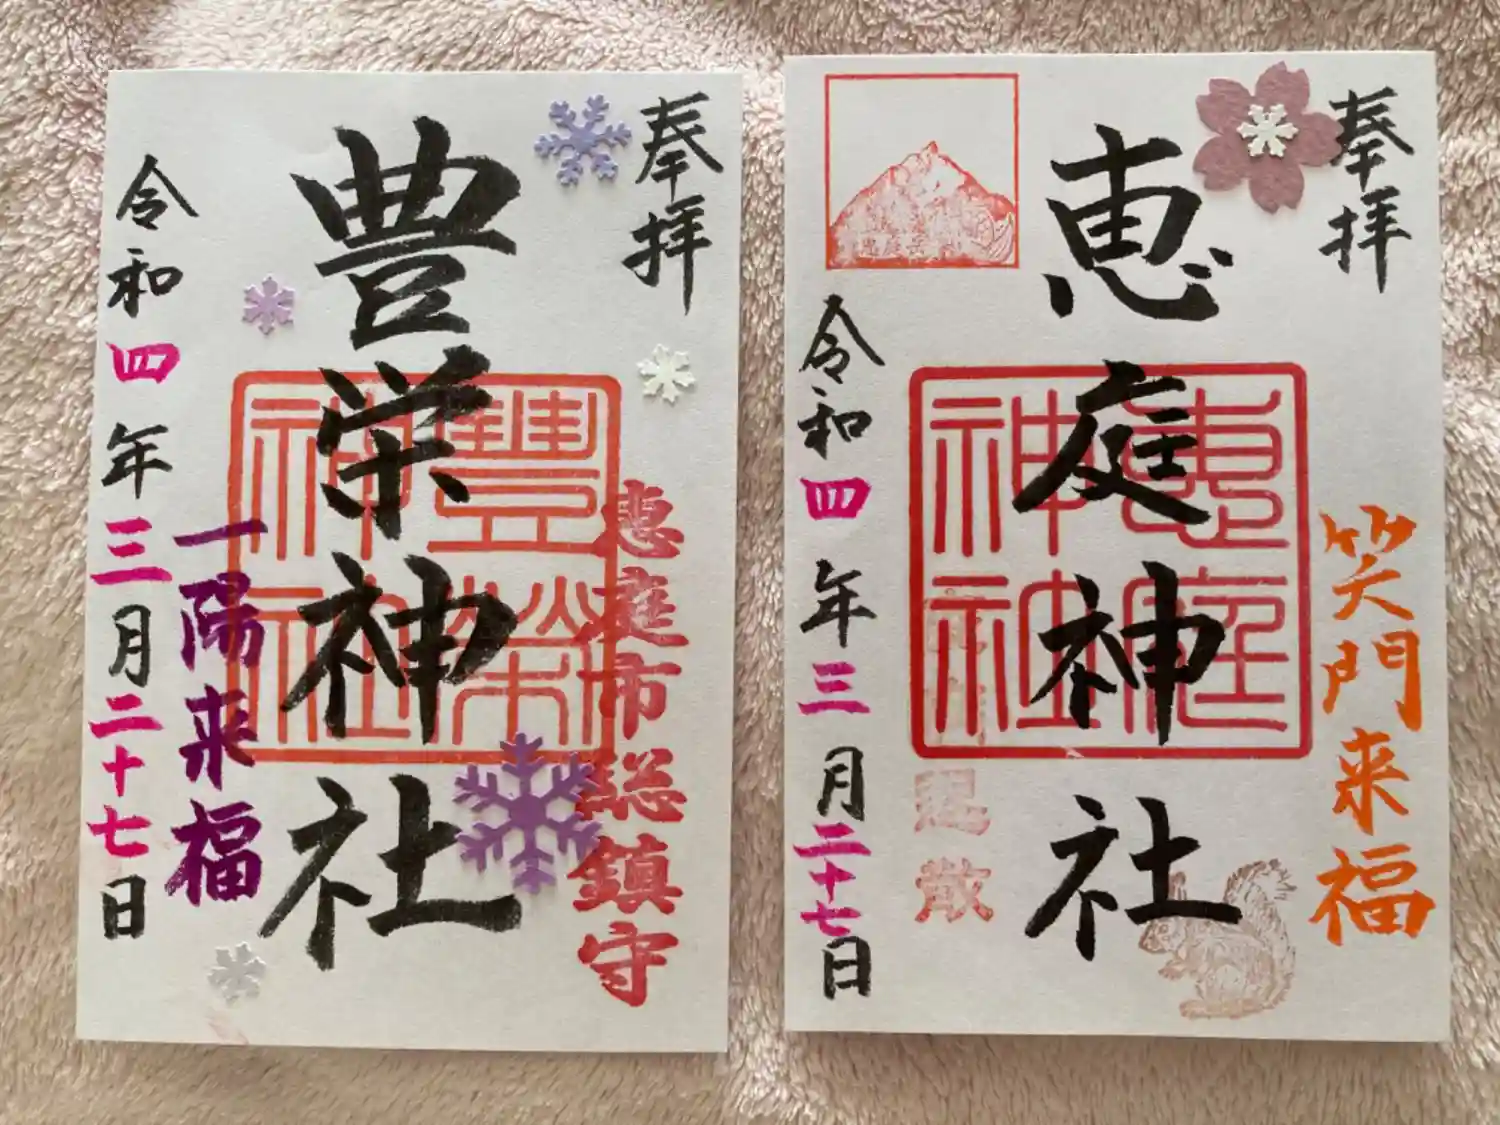 奉拝
豊栄神社
豊榮神社
恵庭市総鎮守
一陽来福
令和四年三月二十七日
奉拝
笑門来福
恵庭神社
恵庭神社
恵庭岳
退散
令和四年三月二十七日